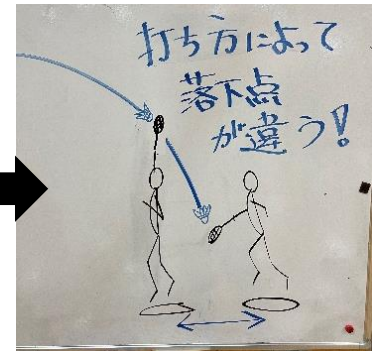 打ち方によって
落下点
が違う!